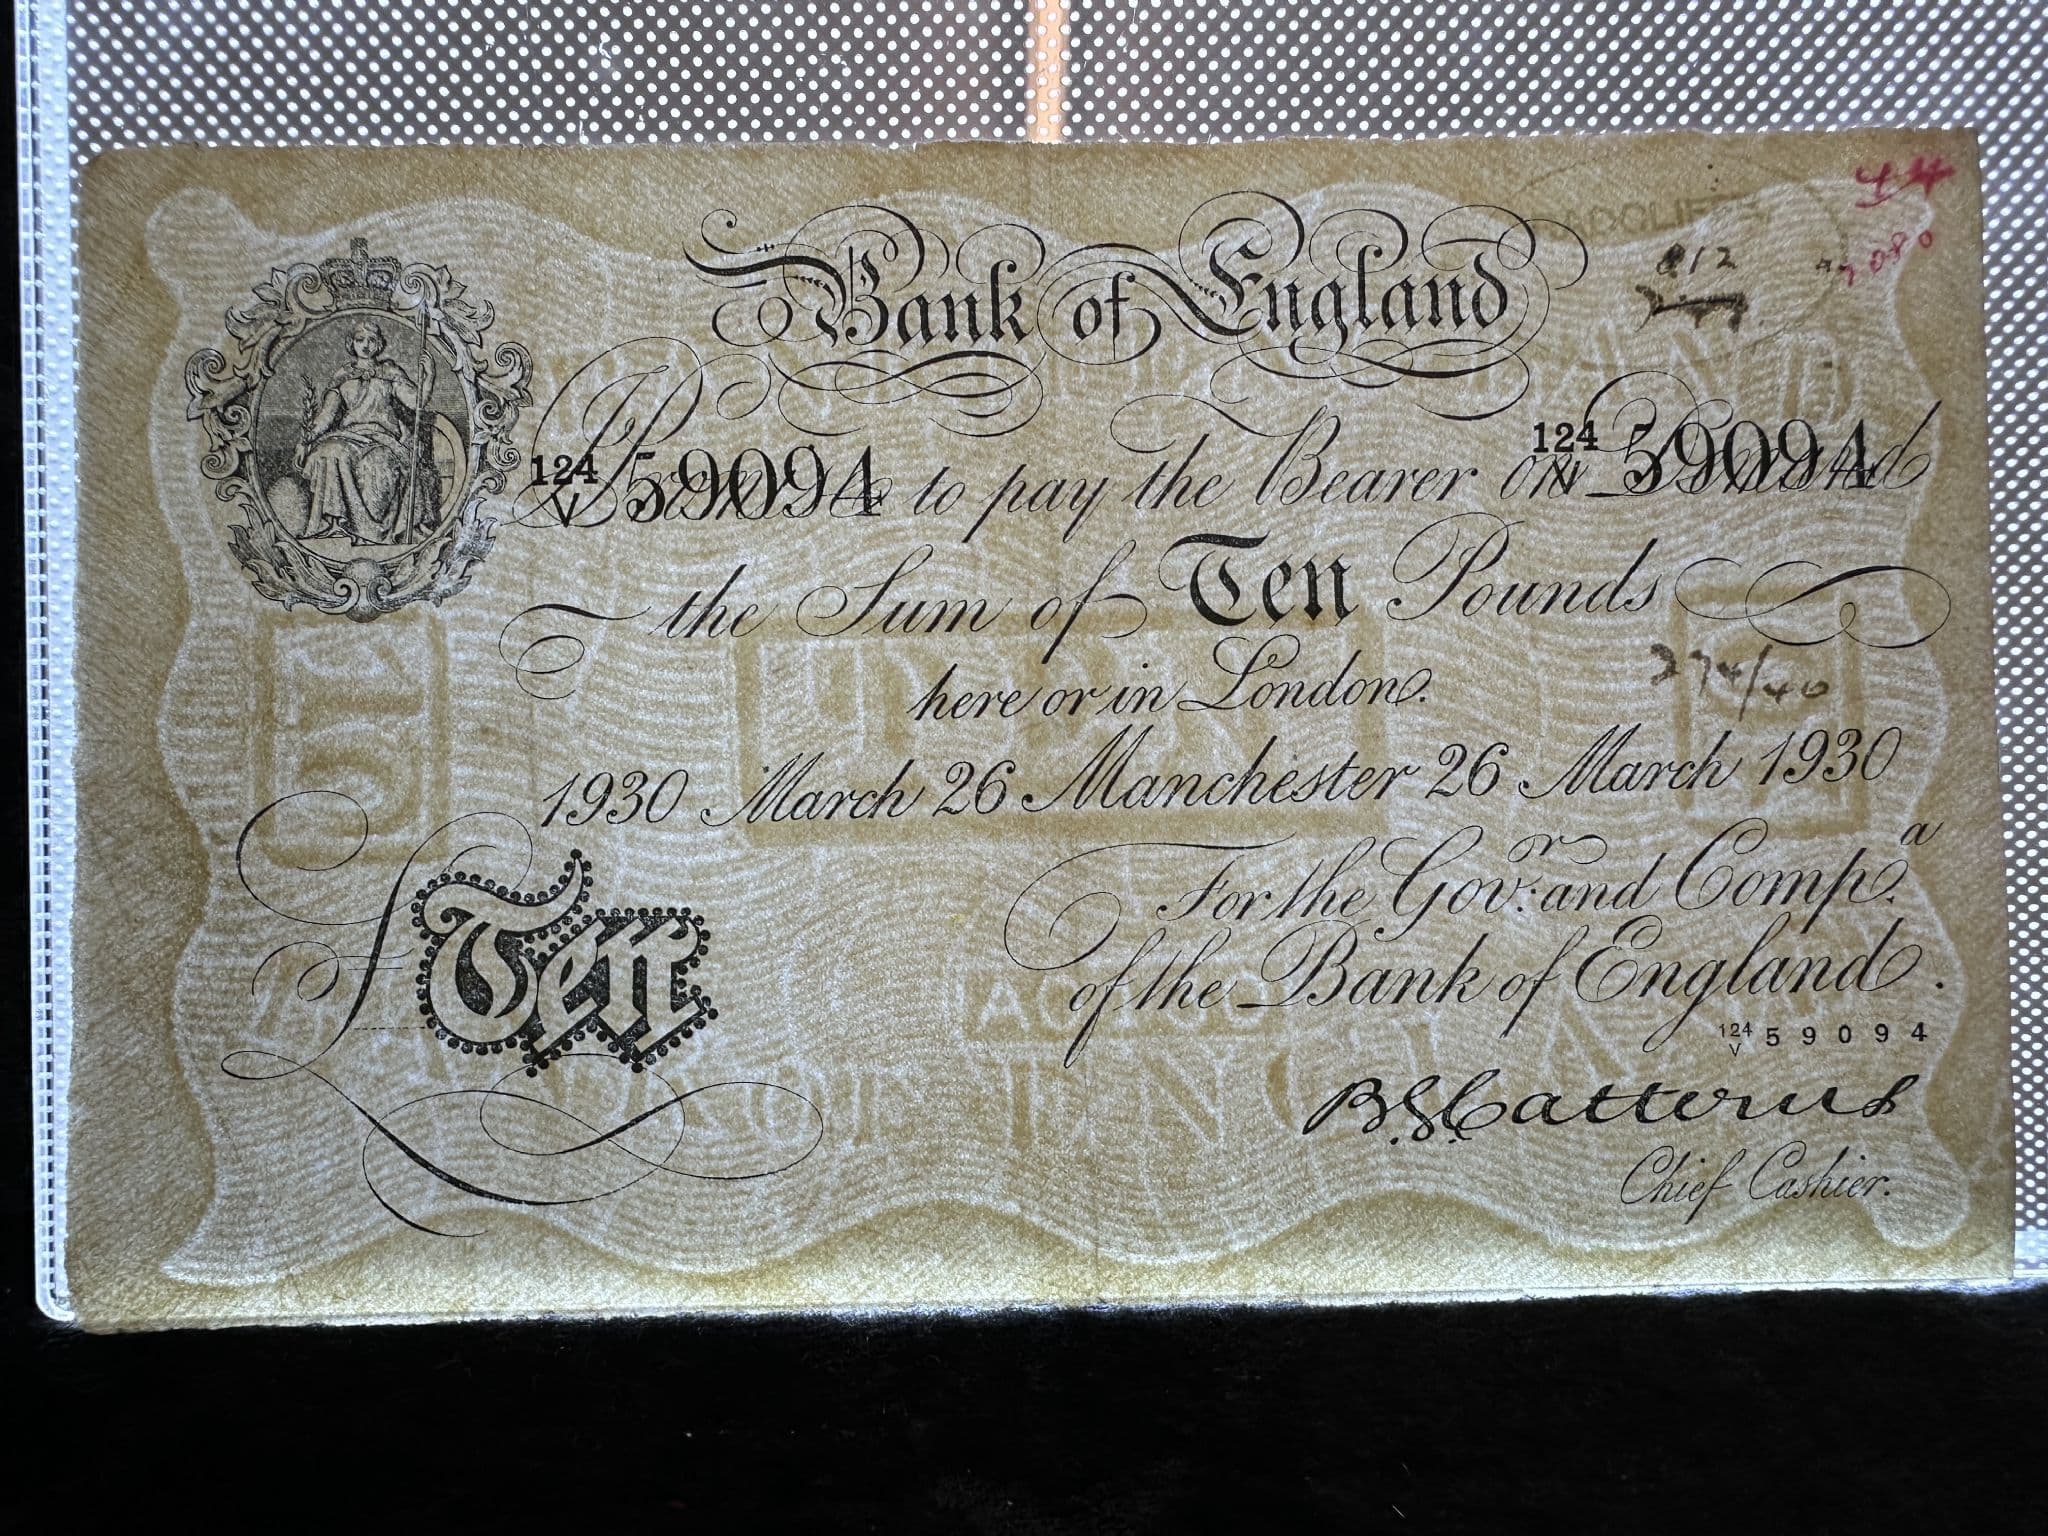 44
Bank of England
812
7080
124 V 59094 124 V 59094
Promise to pay the Bearer on Demand
the Sum of Ten Pounds
here or in London.
274/40
1930 March 26 Manchester 26 March 1930
For the Govr. and Compa.
of the Bank of England.
£ Ten
124 V 59094
B.G. Catterns
Chief Cashier.
TEN